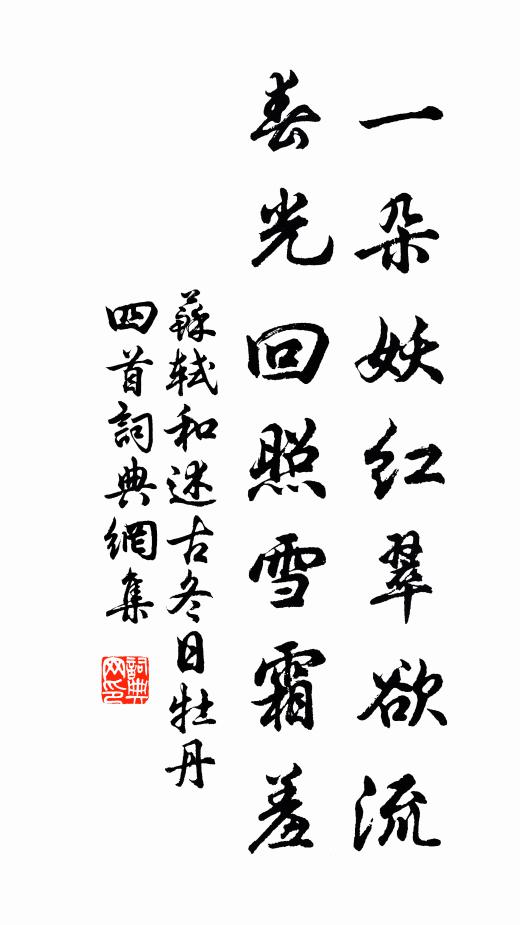 一朵妖红翠欲流
春光回照雪霜羞
蘇軾和述古冬日牡丹
四首詞典網集
詞典网印